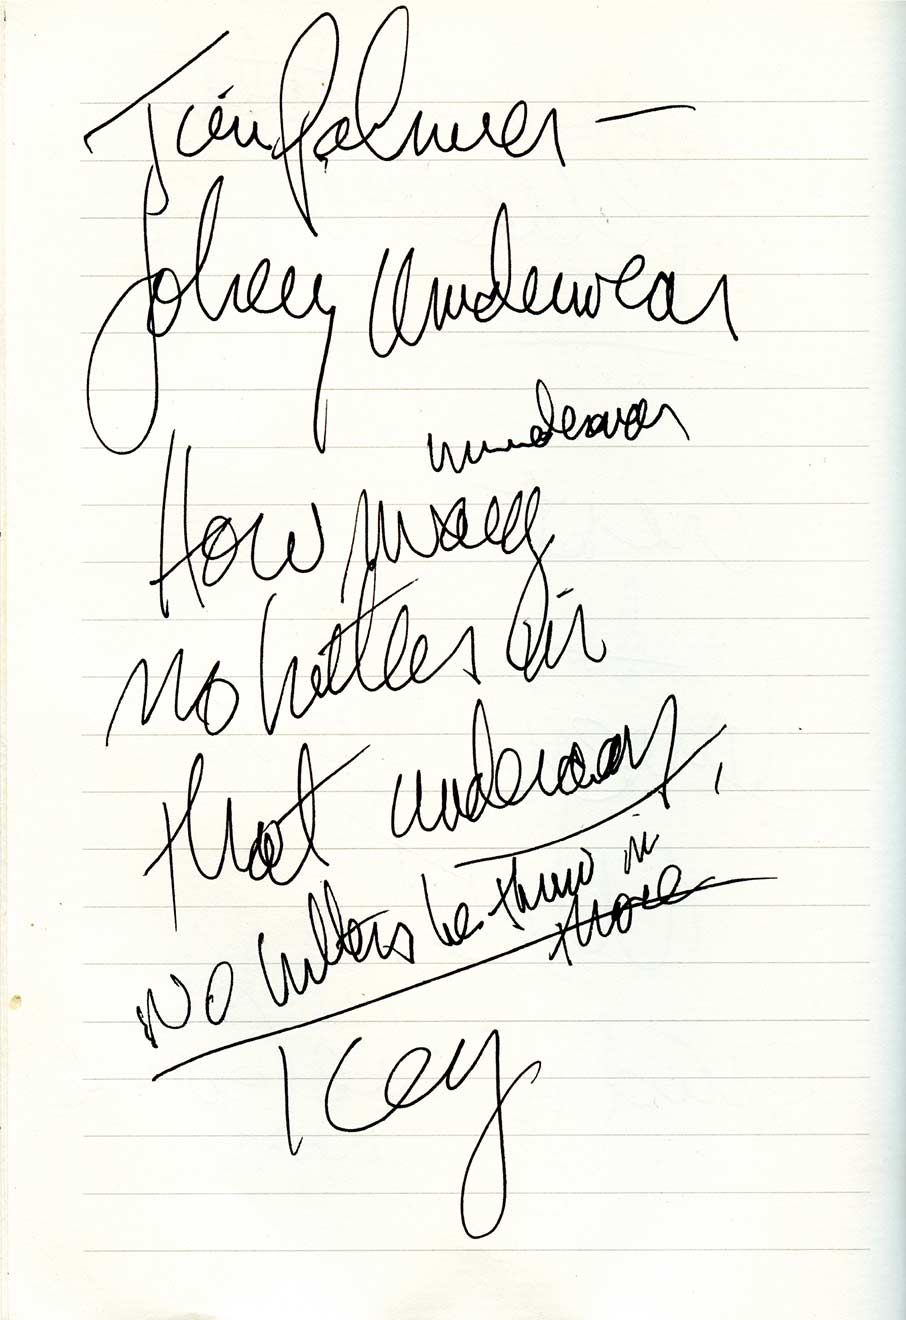 Jim Palmer —
Jockey Underwear
underwear
How many
no hitters in
that underwear,
No hitters be thrown in
there
Key